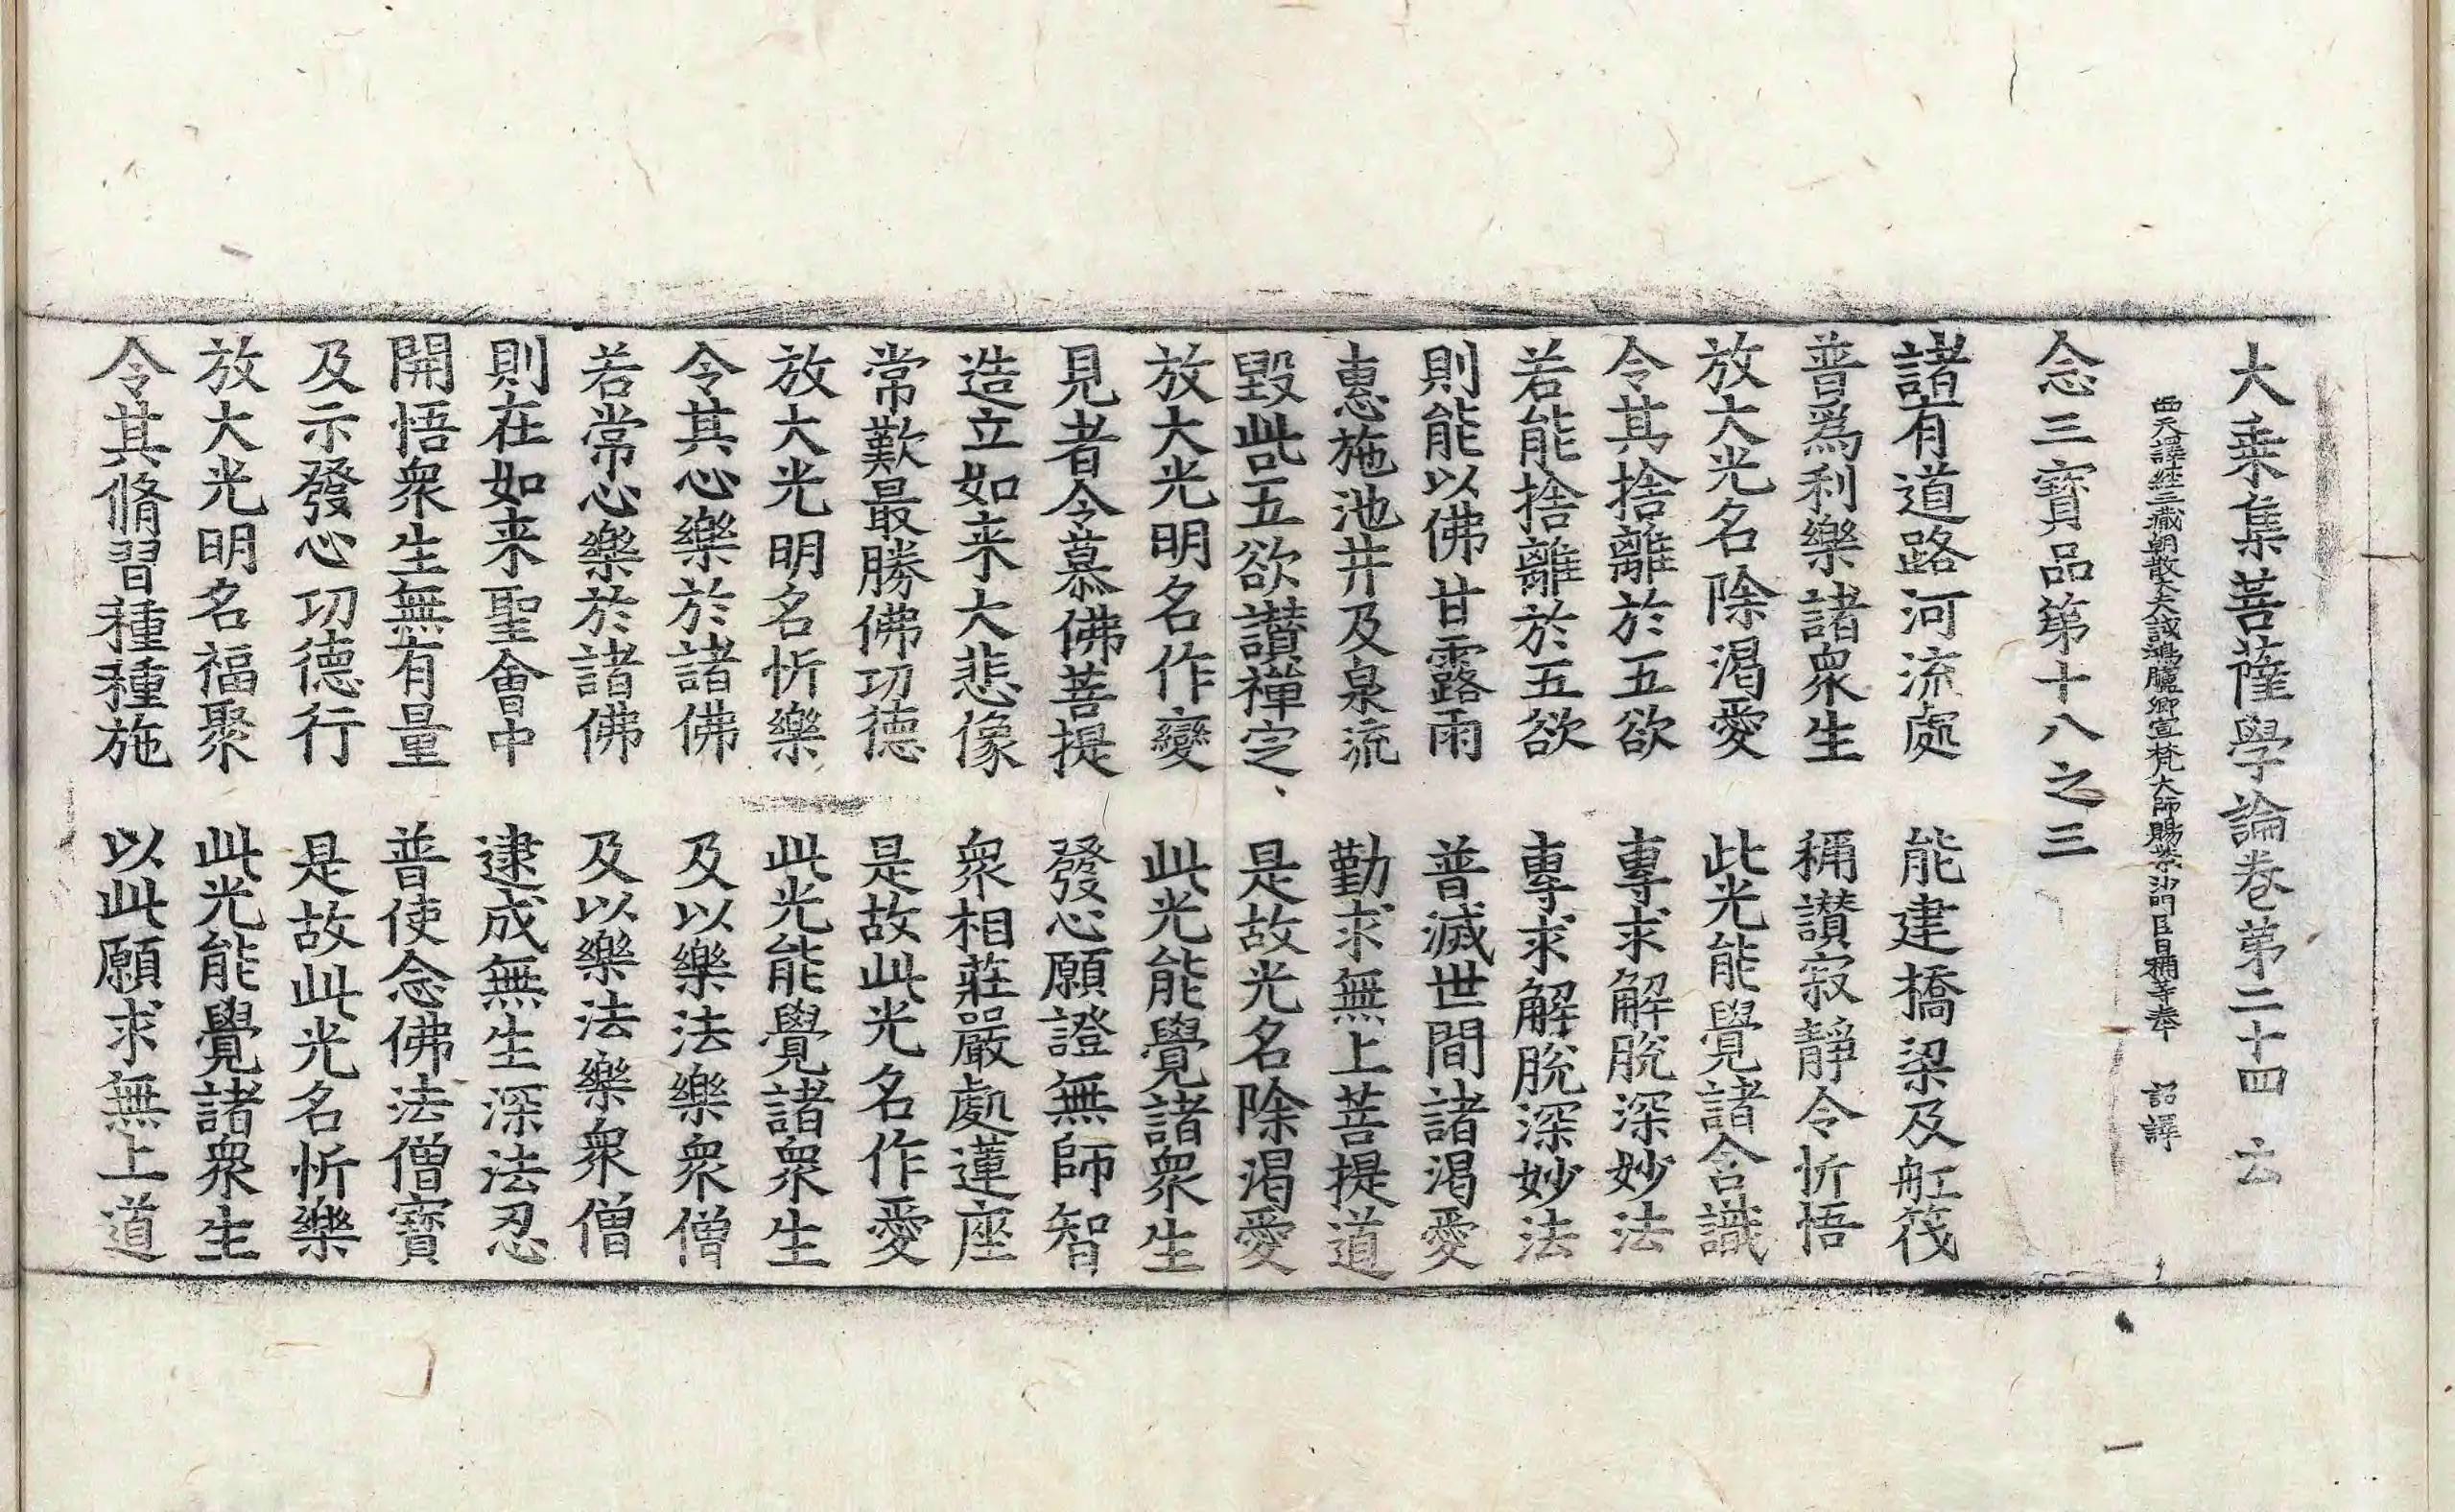 大乗集菩薩學論卷第二十四 云
西天譯經三藏朝散大夫試鴻臚卿宣梵大師賜紫沙門臣日稱等奉 詔譯
念三寶品第十八之三
諸有道路河流處 能建橋梁及舡筏
普爲利樂諸衆生 稱讃寂靜令忻悟
放大光名除渴愛 此光能覺諸含識
令其捨離於五欲 專求解脫深妙法
若能捨離於五欲 專求解脫深妙法
則能以佛甘露雨 普滅世間諸渴愛
惠施池井及泉流 勤求無上菩提道
毀呰五欲讃禪定 是故光名除渴愛
放大光明名作變 此光能覺諸衆生
見者令慕佛菩提 發心願證無師智
造立如来大悲像 衆相莊嚴處蓮座
常歎最勝佛功德 是故此光名作愛
放大光明名忻樂 此光能覺諸衆生
令其心樂於諸佛 及以樂法樂衆僧
若常心樂於諸佛 及以樂法樂衆僧
則在如来聖會中 逮成無生深法忍
開悟衆生無有量 普使念佛法僧寶
及示發心功德行 是故此光名忻樂
放大光明名福聚 此光能覺諸衆生
令其脩習種種施 以此願求無上道